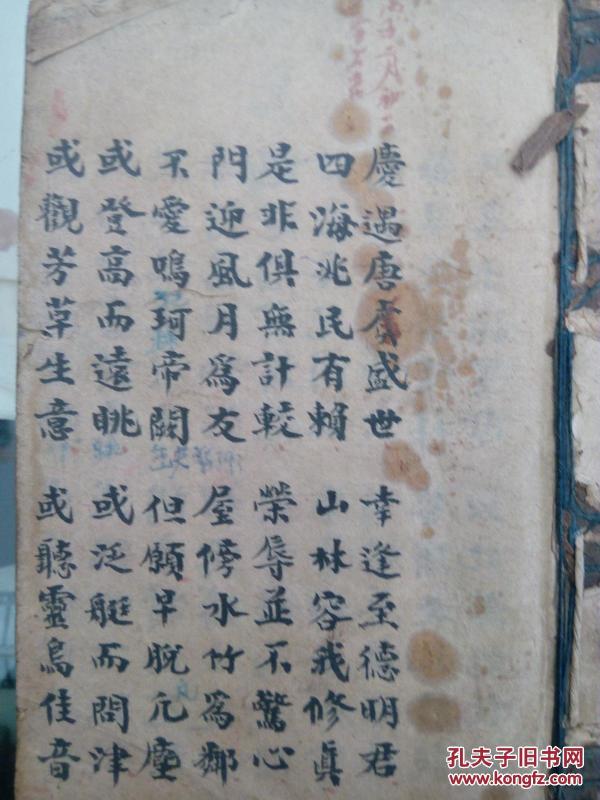 慶遇唐虞盛世 幸逢至德明君
四海兆民有賴 山林容我修眞
是非俱無計較 榮辱並不驚心
門迎風月爲友 屋傍水竹爲鄰
不愛鳴珂帝闕 但願早脫凡塵
或登高而遠眺 或泛艇而問津
或觀芳草生意 或聽靈鳥佳音
孔夫子旧书网
www.kongfz.com